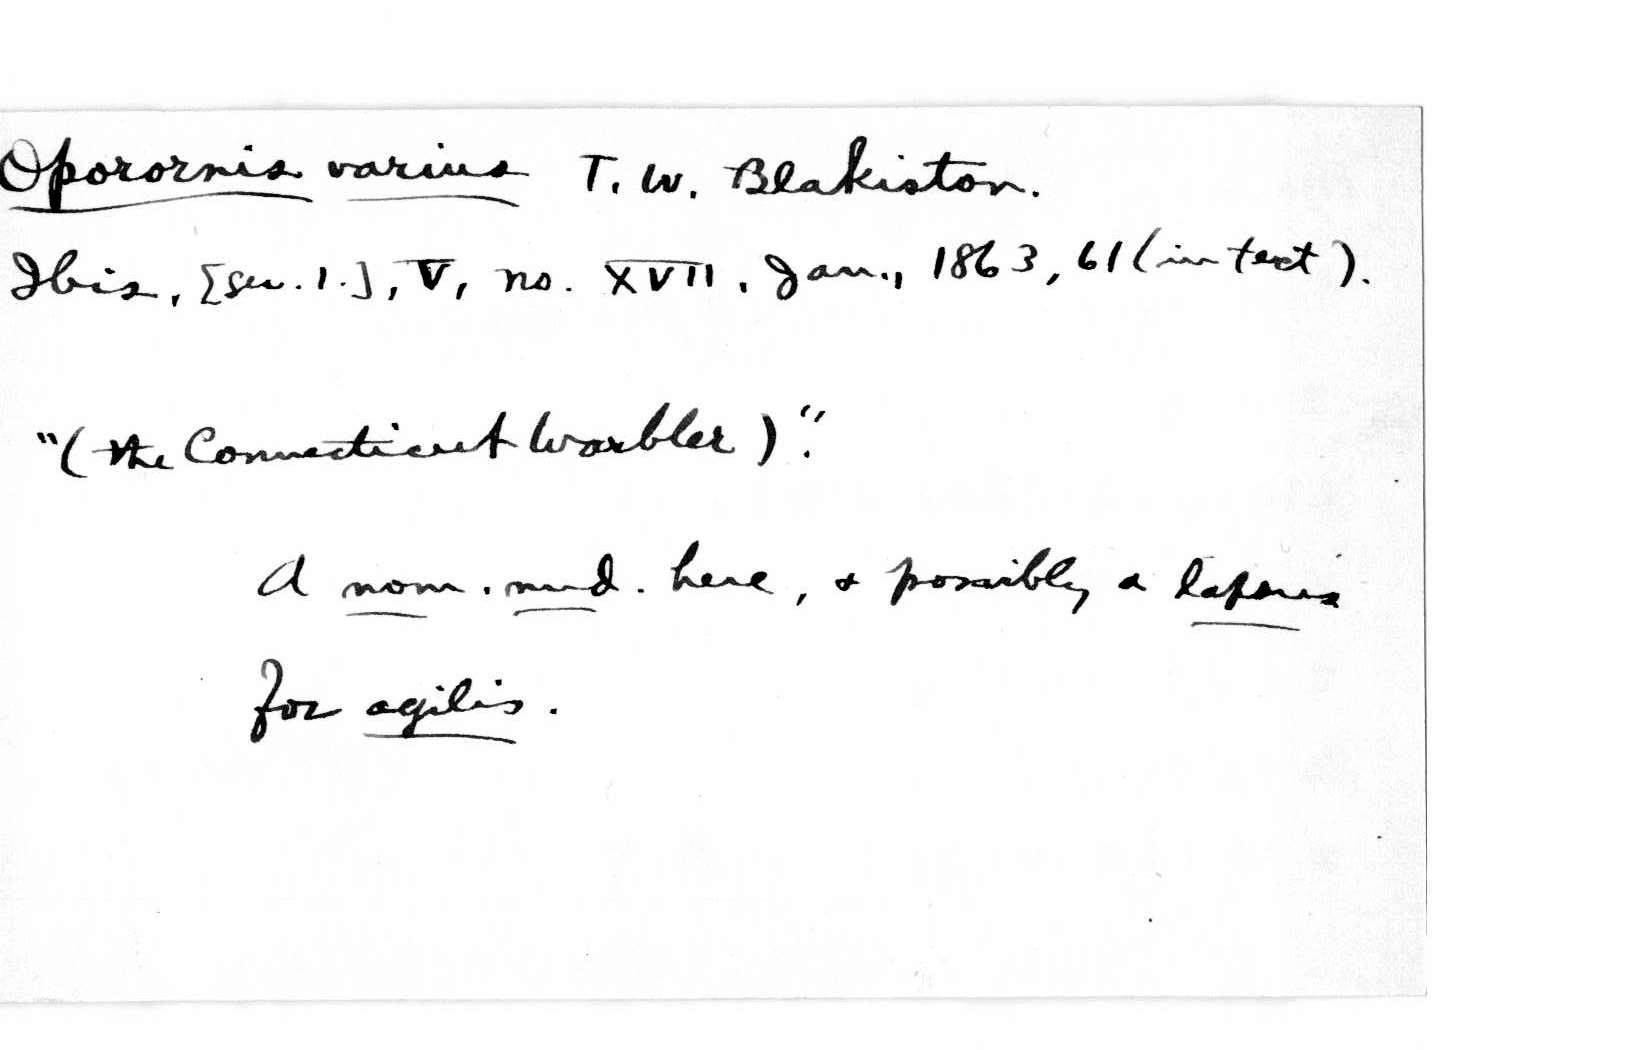 Oporornis varius T. W. Blakiston.
Ibis, [ser. 1.], V, no. XVII, Jan., 1863, 61 (in text).
"(the Connecticut Warbler)".
A nom. nud. here, & possibly a lapsus
for agilis.